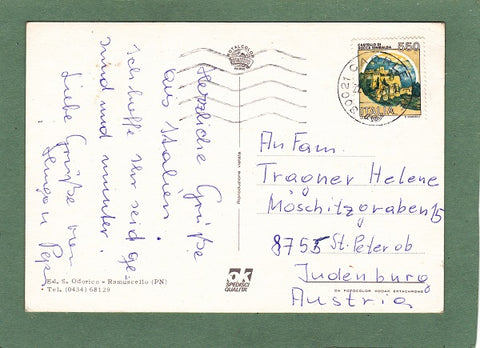 ROTALCOLOR
Herzliche Grüße
aus Italien
Ich hoffe Ihr seid ge-
sund und munter.
Liebe Grüße von
u Pepi
CASTELLO DI
ROCCA SINIBALDA
550
ITALIA
30021 CA
An Fam.
Tragner Helene
Möschitzgraben 15
8755 St. Peter ob
Judenburg
Austria
Riproduzione vietata
Ed. S. Odorico - Ramuscello (PN)
• Tel. (0434) 68129
OK
SPEDISCI
QUALITÀ
OK FOTOCOLOR KODAK EKTACHROME